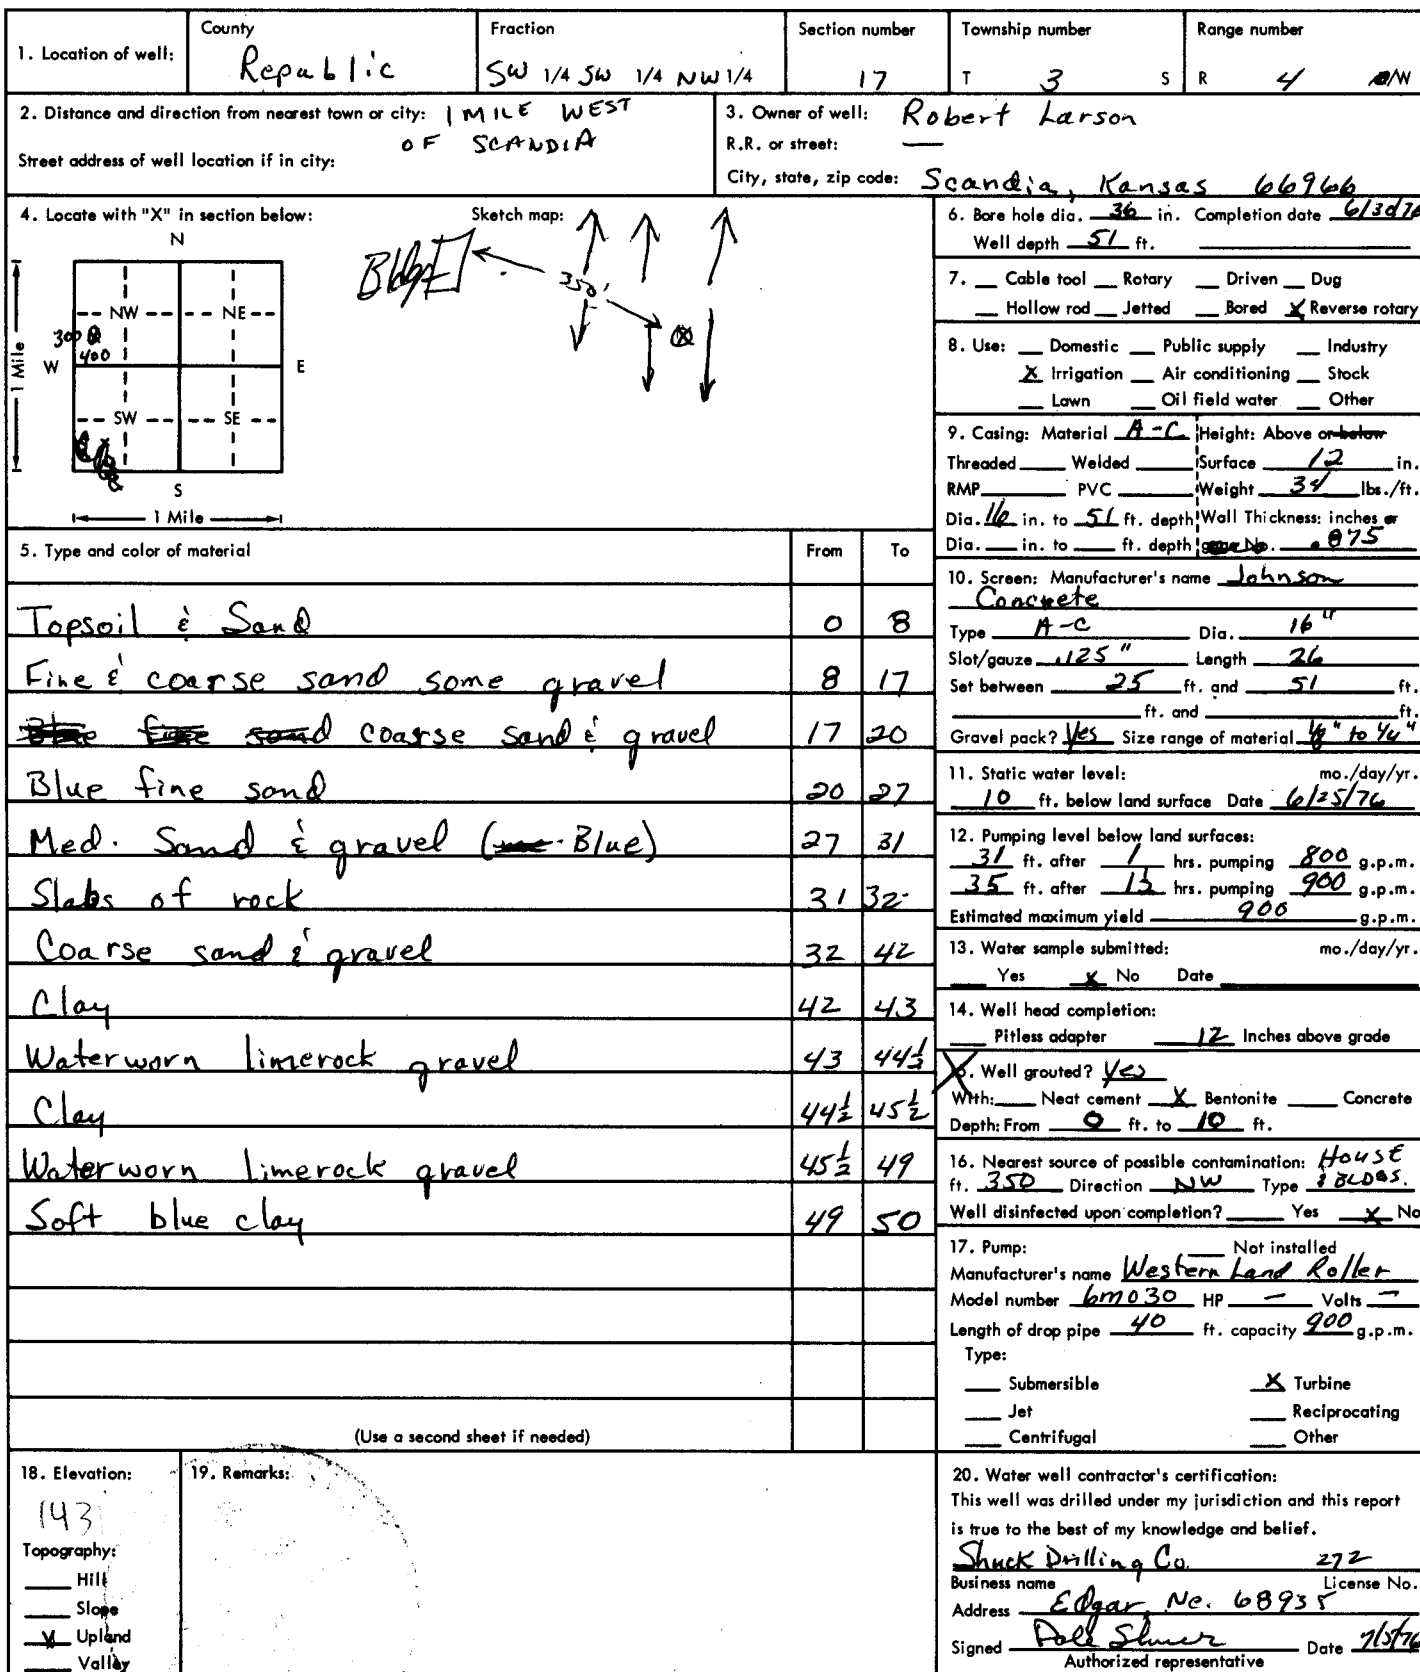 1. Location of well: County Republic Fraction SW 1/4 SW 1/4 NW 1/4 Section number 17 Township number T 3 S Range number R 4 /W
2. Distance and direction from nearest town or city: 1 MILE WEST
OF SCANDIA
Street address of well location if in city:
3. Owner of well: Robert Larson
R.R. or street: —
City, state, zip code: Scandia, Kansas 66966
4. Locate with "X" in section below:
N
NW NE
300
400
W E
SW SE
S
1 Mile
1 Mile
Sketch map:
Bldg
350'
5. Type and color of material From To
Topsoil & Sand 0 8
Fine & coarse sand some gravel 8 17
Blue fine sand coarse sand & gravel 17 20
Blue fine sand 20 27
Med. Sand & gravel ( Blue) 27 31
Slabs of rock 31 32
Coarse sand & gravel 32 42
Clay 42 43
Waterworn limerock gravel 43 44½
Clay 44½ 45½
Waterworn limerock gravel 45½ 49
Soft blue clay 49 50
(Use a second sheet if needed)
6. Bore hole dia. 36 in. Completion date 6/30/76
Well depth 51 ft.
7. Cable tool Rotary Driven Dug
Hollow rod Jetted Bored X Reverse rotary
8. Use: Domestic Public supply Industry
X Irrigation Air conditioning Stock
Lawn Oil field water Other
9. Casing: Material A-C Height: Above or below
Threaded Welded Surface 12 in.
RMP PVC Weight 34 lbs./ft.
Dia. 16 in. to 51 ft. depth Wall Thickness: inches or
Dia. in. to ft. depth No. .875
10. Screen: Manufacturer's name Johnson
Concrete
Type A-C Dia. 16"
Slot/gauze .125" Length 26
Set between 25 ft. and 51 ft.
ft. and ft.
Gravel pack? Yes Size range of material 1/8" to 1/4"
11. Static water level: mo./day/yr.
10 ft. below land surface Date 6/25/76
12. Pumping level below land surfaces:
31 ft. after 1 hrs. pumping 800 g.p.m.
35 ft. after hrs. pumping 900 g.p.m.
Estimated maximum yield 900 g.p.m.
13. Water sample submitted: mo./day/yr.
Yes X No Date
14. Well head completion:
Pitless adapter 12 Inches above grade
X . Well grouted? Yes
With: Neat cement X Bentonite Concrete
Depth: From 0 ft. to 10 ft.
16. Nearest source of possible contamination: House
ft. 350 Direction NW Type & BLDGS.
Well disinfected upon completion? Yes X No
17. Pump: Not installed
Manufacturer's name Western Land Roller
Model number 6M030 HP — Volts —
Length of drop pipe 40 ft. capacity 900 g.p.m.
Type:
Submersible X Turbine
Jet Reciprocating
Centrifugal Other
18. Elevation:
143
Topography:
Hill
Slope
X Upland
Valley
19. Remarks:
20. Water well contractor's certification:
This well was drilled under my jurisdiction and this report
is true to the best of my knowledge and belief.
Shuck Drilling Co. 272
Business name License No.
Address Edgar, Ne. 68935
Signed Date 7/5/76
Authorized representative